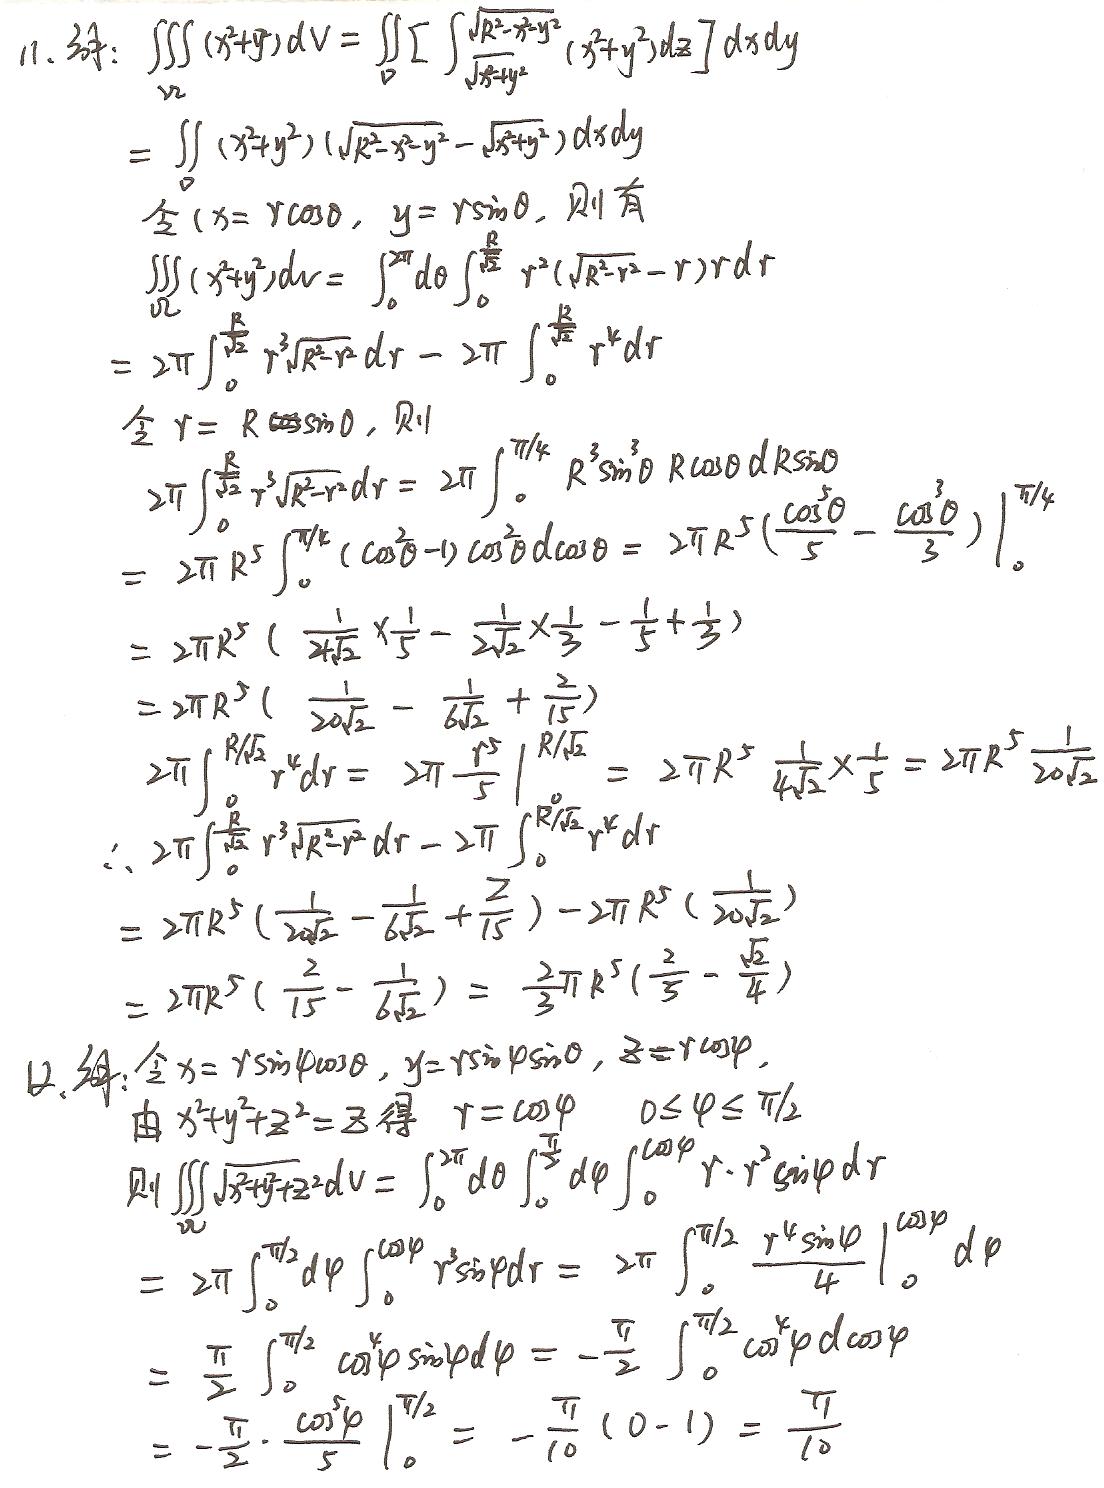 11. 解: ∭_Ω (x²+y²)dV = ∬_D [ ∫_{√(x²+y²)}^{√(R²-x²-y²)} (x²+y²)dz ] dxdy
= ∬_D (x²+y²)(√(R²-x²-y²) - √(x²+y²)) dxdy
令 (x = rcosθ, y = rsinθ, 则有
∭_Ω (x²+y²)dv = ∫_0^{2π} dθ ∫_0^{R/√2} r²(√(R²-r²) - r) r dr
= 2π ∫_0^{R/√2} r³√(R²-r²) dr - 2π ∫_0^{R/√2} r⁴dr
令 r = R sinθ, 则
2π ∫_0^{R/√2} r³√(R²-r²) dr = 2π ∫_0^{π/4} R³sin³θ Rcosθ dRsinθ
= 2πR⁵ ∫_0^{π/4} (cos²θ-1) cos²θ dcosθ = 2πR⁵ (cos⁵θ/5 - cos³θ/3) |_0^{π/4}
= 2πR⁵ ( 1/(4√2) × 1/5 - 1/(2√2) × 1/3 - 1/5 + 1/3 )
= 2πR⁵ ( 1/(20√2) - 1/(6√2) + 2/15 )
2π ∫_0^{R/√2} r⁴dr = 2π r⁵/5 |_0^{R/√2} = 2πR⁵ 1/(4√2) × 1/5 = 2πR⁵ 1/(20√2)
∴ 2π ∫_0^{R/√2} r³√(R²-r²) dr - 2π ∫_0^{R/√2} r⁴dr
= 2πR⁵ ( 1/(20√2) - 1/(6√2) + 2/15 ) - 2πR⁵ ( 1/(20√2) )
= 2πR⁵ ( 2/15 - 1/(6√2) ) = 2/3 πR⁵ ( 2/5 - √2/4 )
12. 解: 令 x = rsinφcosθ, y = rsinφsinθ, z = rcosφ,
由 x²+y²+z² = z 得 r = cosφ 0 ≤ φ ≤ π/2
则 ∭_Ω √(x²+y²+z²) dV = ∫_0^{2π} dθ ∫_0^{π/2} dφ ∫_0^{cosφ} r·r²sinφ dr
= 2π ∫_0^{π/2} dφ ∫_0^{cosφ} r³sinφdr = 2π ∫_0^{π/2} r⁴sinφ/4 |_0^{cosφ} dφ
= π/2 ∫_0^{π/2} cos⁴φ sinφdφ = -π/2 ∫_0^{π/2} cos⁴φ dcosφ
= -π/2 · cos⁵φ/5 |_0^{π/2} = -π/10 (0-1) = π/10